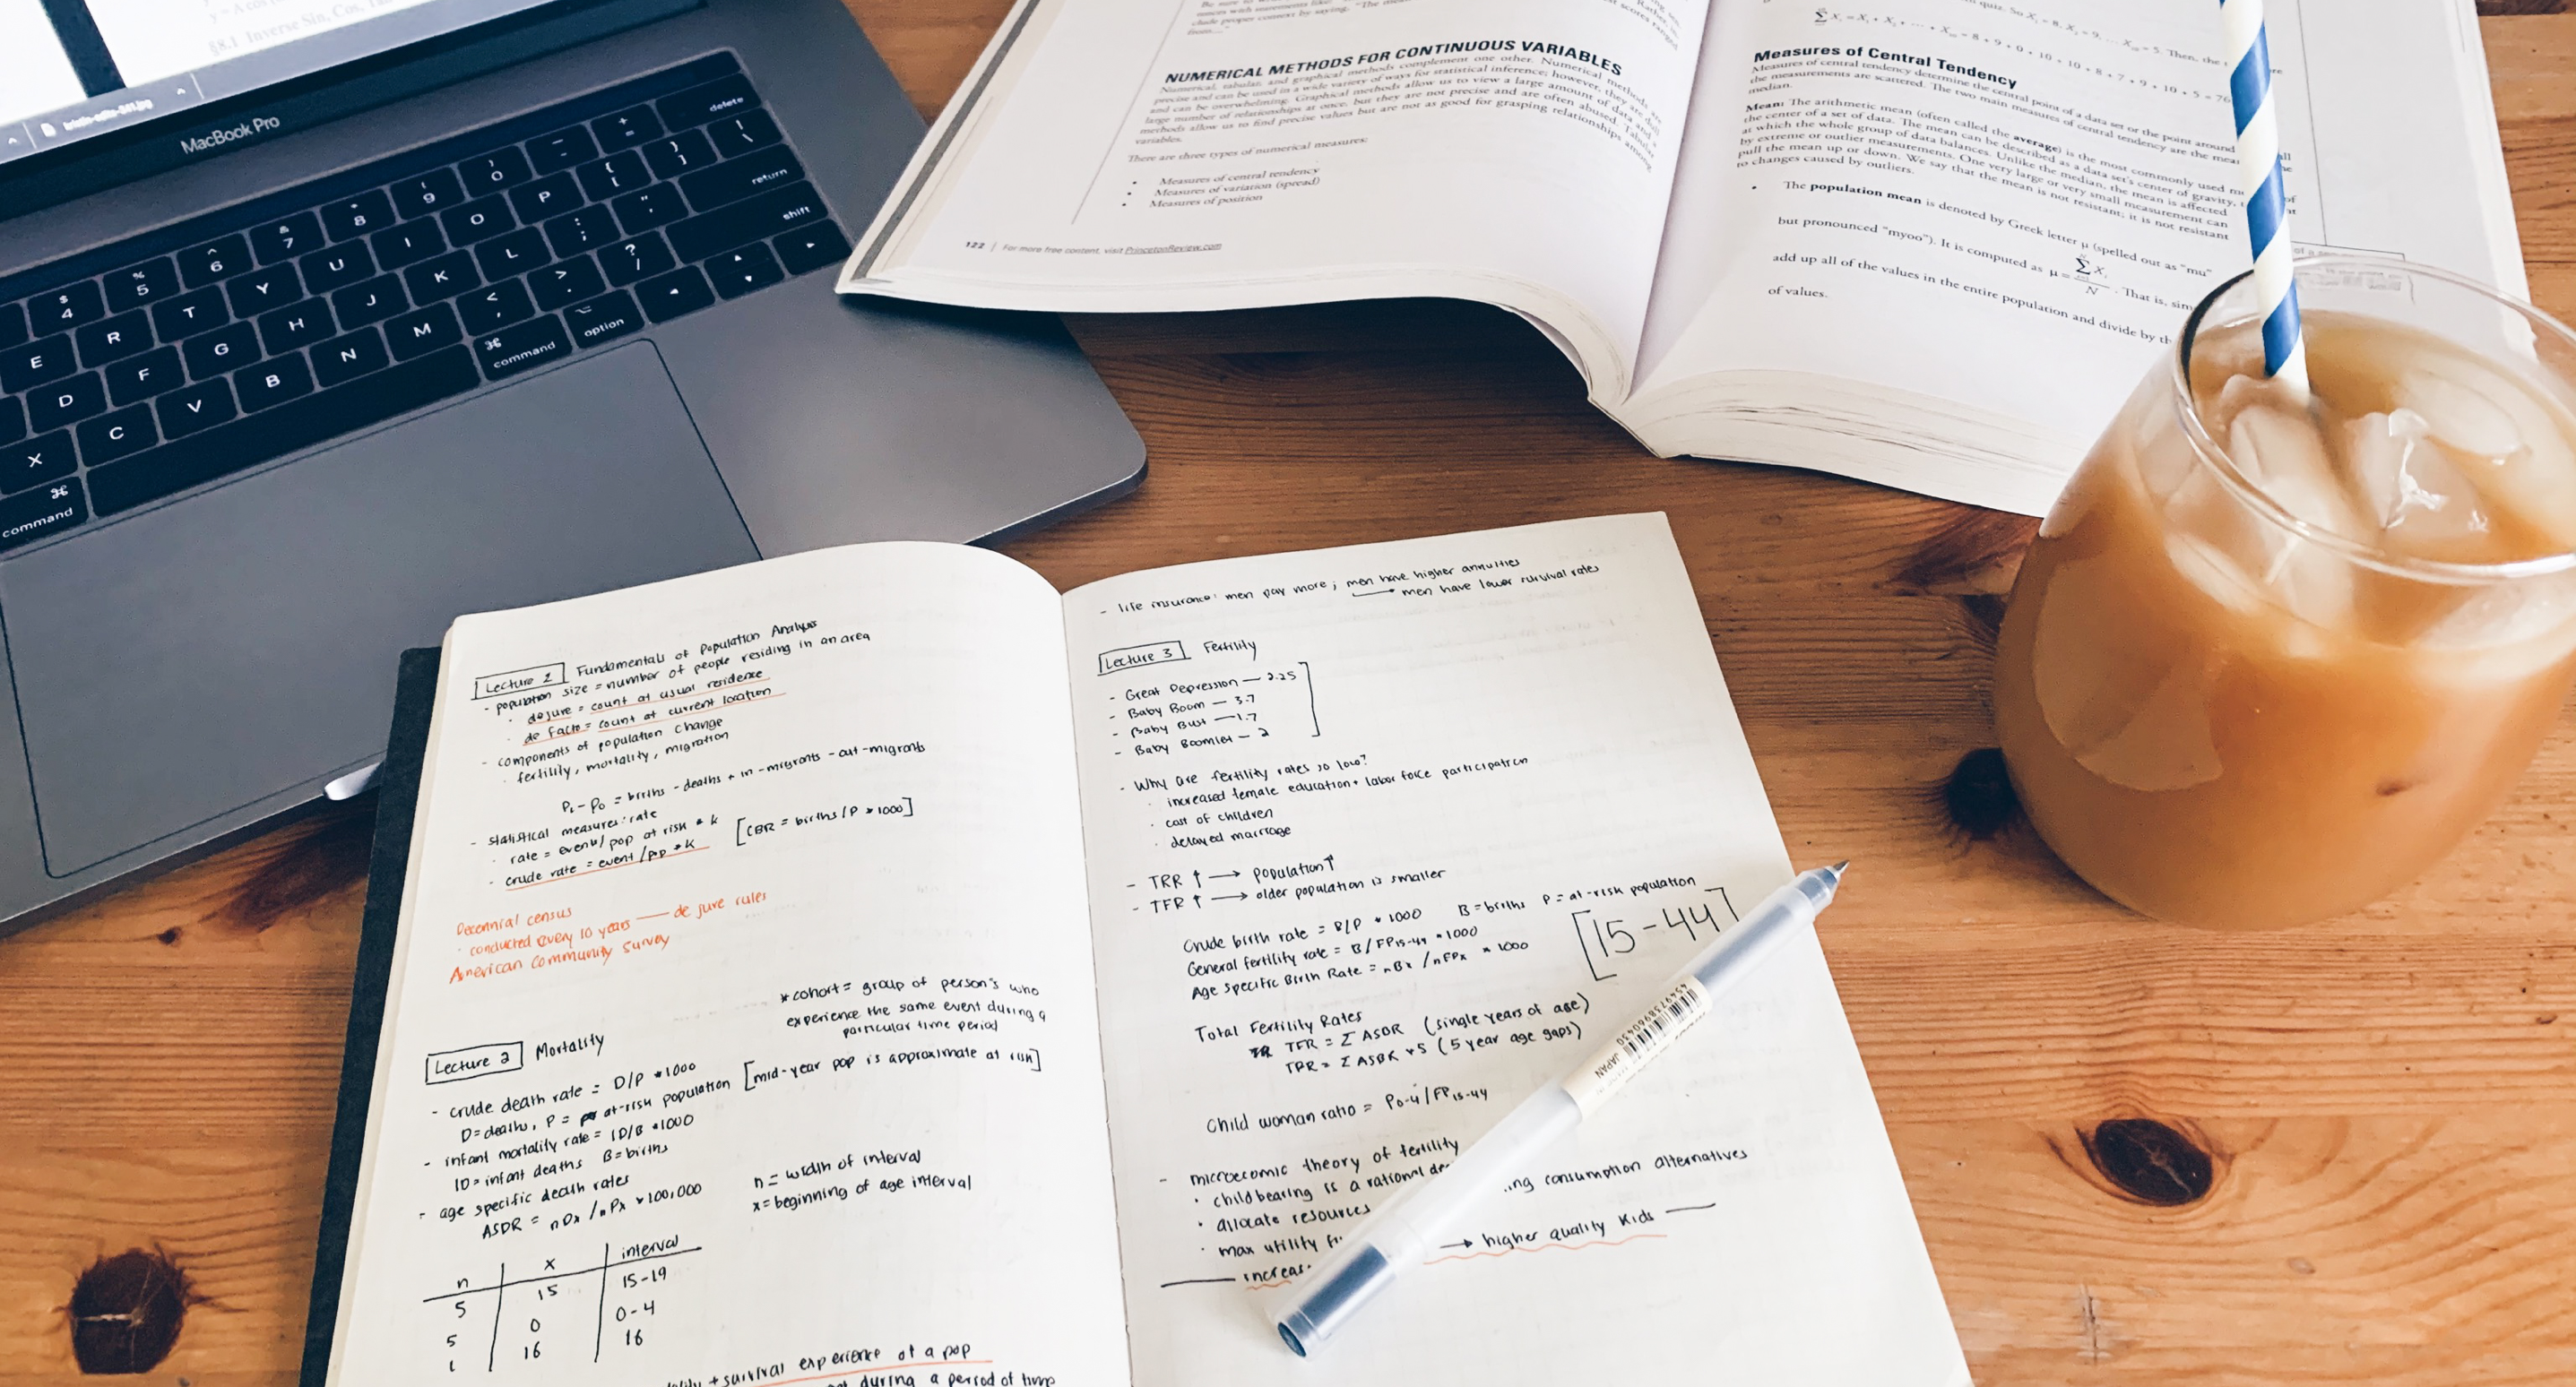 §8.1 Inverse Sin, Cos, Tan
MacBook Pro
delete
$ 4 % 5 ^ 6 & 7 * 8 ( 9 ) 0 _ - + =
E R T Y U I O P { [ } ] | \
return
D F G H J K L : ; " '
shift
X C V B N M < , > . ? /
command
⌘
command
option
NUMERICAL METHODS FOR CONTINUOUS VARIABLES
Numerical, tabular, and graphical methods complement one other. Numerical methods are
precise and can be used in a wide variety of ways for statistical inference; however, they are
and can be overwhelming. Graphical methods allow us to view a large amount of data and
large number of relationships at once, but they are not precise and are often abused. Tabular
methods allow us to find precise values but are not as good for grasping relationships among
variables.
There are three types of numerical measures:
• Measures of central tendency
• Measures of variation (spread)
• Measures of position
122 | For more free content, visit PrincetonReview.com
quiz. So X₁ = 8, X₂ = 9, ... = 5. Then, the
Measures of Central Tendency
Measures of central tendency determine the central point of a data set or the point around
the measurements are scattered. The two main measures of central tendency are the
median.
Mean: The arithmetic mean (often called the average) is the most commonly used
the center of a set of data. The mean can be described as a data set's center of gravity,
at which the whole group of data balances. Unlike the median, the mean is affected
by extreme or outlier measurements. One very large or very small measurement can
pull the mean up or down. We say that the mean is not resistant; it is not resistant
to changes caused by outliers.
• The population mean is denoted by Greek letter μ (spelled out as "mu"
but pronounced "myoo"). It is computed as μ = ΣXᵢ / N. That is,
add up all of the values in the entire population and divide by
of values.
Lecture 1 Fundamentals of Population Analysis
- population size = number of people residing in an area
· dejure = count at usual residence
· de facto = count at current location
- components of population change
· fertility, mortality, migration
P₁ - P₀ = births - deaths + in-migrants - out-migrants
- statistical measures: rate
· rate = events/pop at risk * k
· crude rate = event/pop * k [CBR = births/P * 1000]
Decennial census
· conducted every 10 years — de jure rules
American Community Survey
* cohort = group of person's who
experience the same event during a
particular time period
Lecture 2 Mortality
- crude death rate = D/P * 1000
D = deaths, P = at-risk population [mid-year pop is approximate at risk]
- infant mortality rate = ID/B * 1000
ID = infant deaths B = births
- age specific death rates
ASDR = nDx / nPx * 100,000
n = width of interval
x = beginning of age interval
n x interval
5 15 15-19
5 0 0-4
1 16 16
+ survival experience of a pop
during a period of time
- life insurance: men pay more; men have higher annuities
→ men have lower survival rates
Lecture 3 Fertility
- Great Depression — 2.25
- Baby Boom — 3.7
- Baby Bust — 1.7
- Baby Boomlet — 2
- Why are fertility rates so low?
· increased female education + labor force participation
· cost of children
· delayed marriage
- TRR ↑ → population ↑
- TFR ↑ → older population is smaller
Crude birth rate = B/P * 1000 B = births P = at-risk population
General fertility rate = B/FP15-44 * 1000
[15-44]
Age Specific Birth Rate = nBx / nFPx * 1000
Total Fertility Rates
TFR = Σ ASBR (single years of age)
TFR = Σ ASBR * 5 (5 year age gaps)
Child woman ratio = P0-4/FP15-44
- microecomic theory of fertility
· childbearing is a rational
consumption alternatives
· allocate resources
· max utility
→ higher quality kids
JAPAN